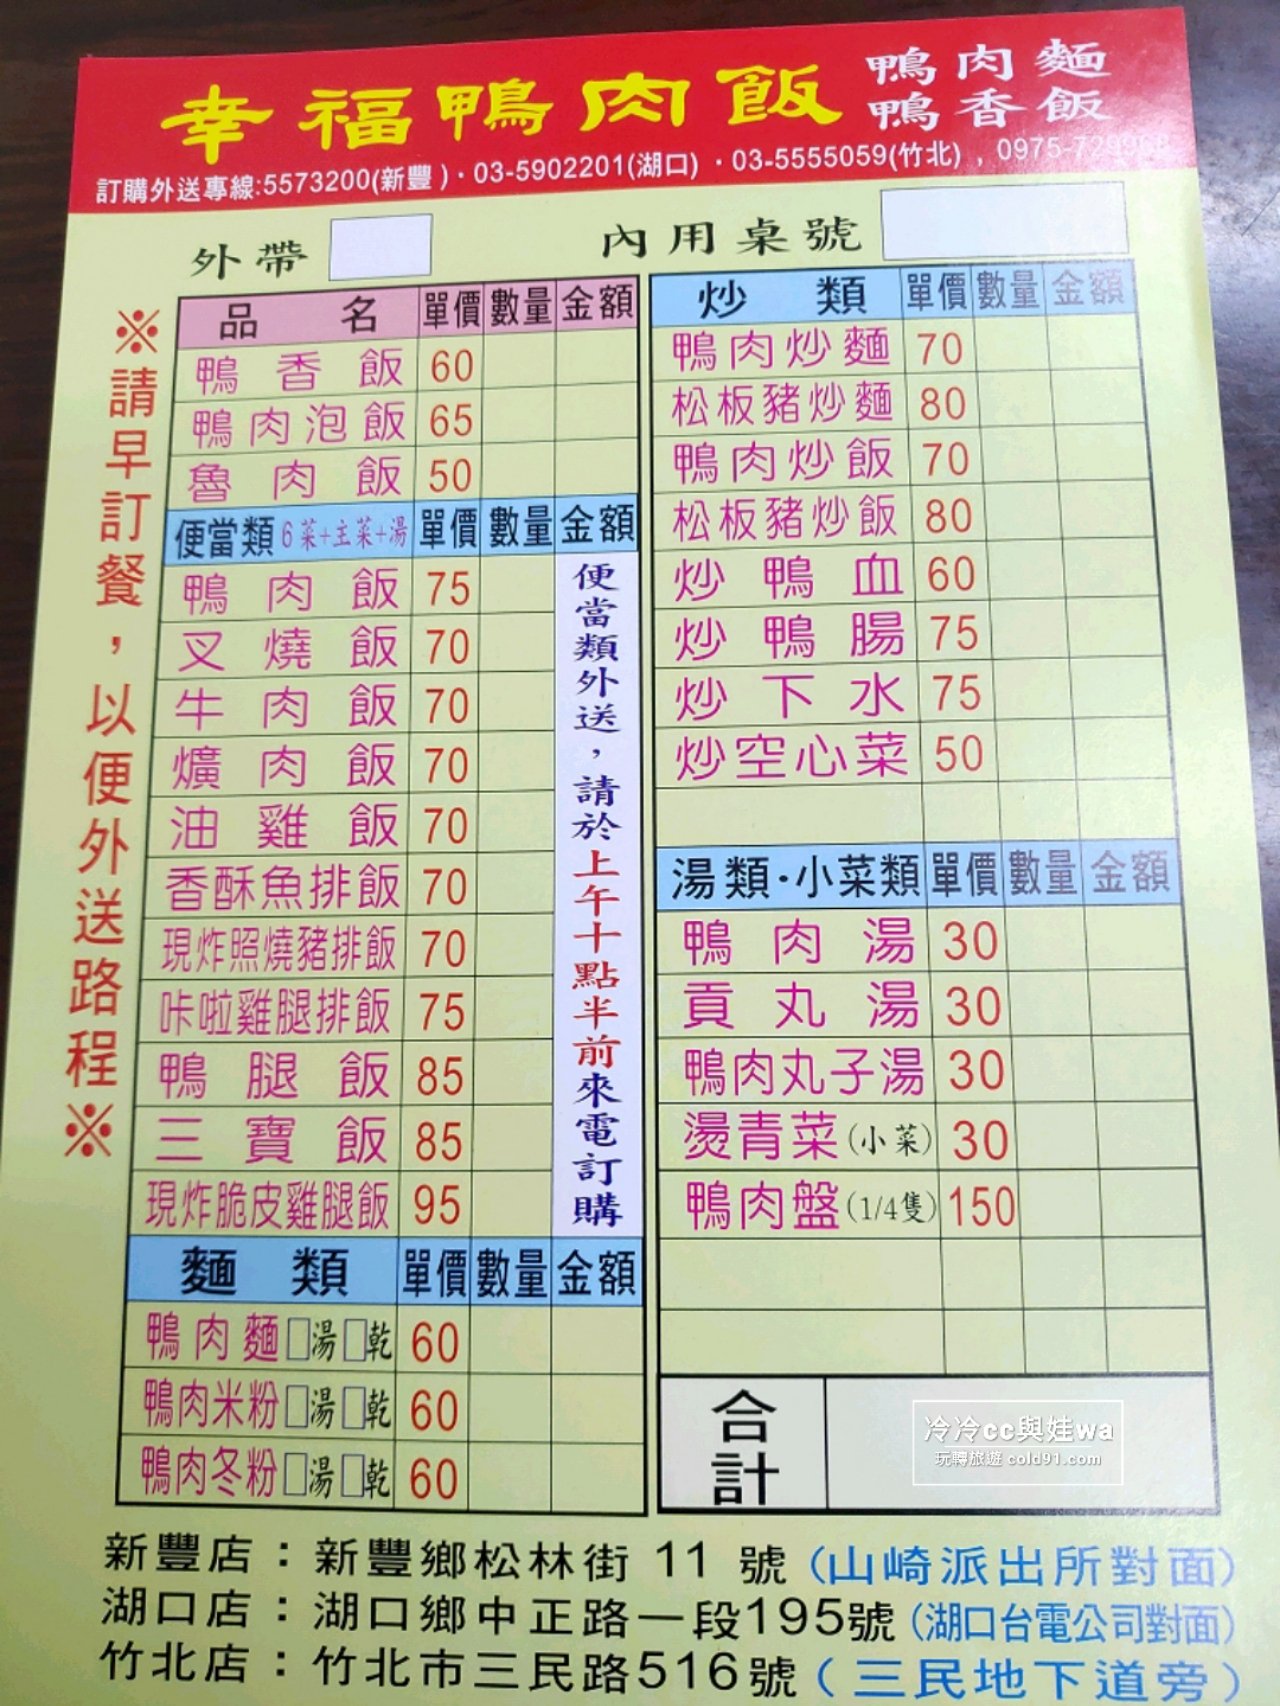 幸福鴨肉飯 鴨肉麵
鴨香飯
訂購外送專線:5573200(新豐)·03-5902201(湖口)·03-5555059(竹北)，0975-729
外帶
內用桌號
※請早訂餐，以便外送路程※
品名 單價 數量 金額
鴨香飯 60
鴨肉泡飯 65
魯肉飯 50
便當類 6菜+主菜+湯 單價 數量 金額
鴨肉飯 75
叉燒飯 70
牛肉飯 70
爌肉飯 70
油雞飯 70
香酥魚排飯 70
現炸照燒豬排飯 70
咔啦雞腿排飯 75
鴨腿飯 85
三寶飯 85
現炸脆皮雞腿飯 95
便當類外送，請於上午十點半前來電訂購
麵類 單價 數量 金額
鴨肉麵 □湯 □乾 60
鴨肉米粉 □湯 □乾 60
鴨肉冬粉 □湯 □乾 60
炒類 單價 數量 金額
鴨肉炒麵 70
松板豬炒麵 80
鴨肉炒飯 70
松板豬炒飯 80
炒鴨血 60
炒鴨腸 75
炒下水 75
炒空心菜 50
湯類·小菜類 單價 數量 金額
鴨肉湯 30
貢丸湯 30
鴨肉丸子湯 30
燙青菜(小菜) 30
鴨肉盤(1/4隻) 150
合計
冷冷cc與娃wa
玩轉旅遊 cold91.com
新豐店：新豐鄉松林街 11 號(山崎派出所對面)
湖口店：湖口鄉中正路一段195號(湖口台電公司對面)
竹北店：竹北市三民路516號(三民地下道旁)